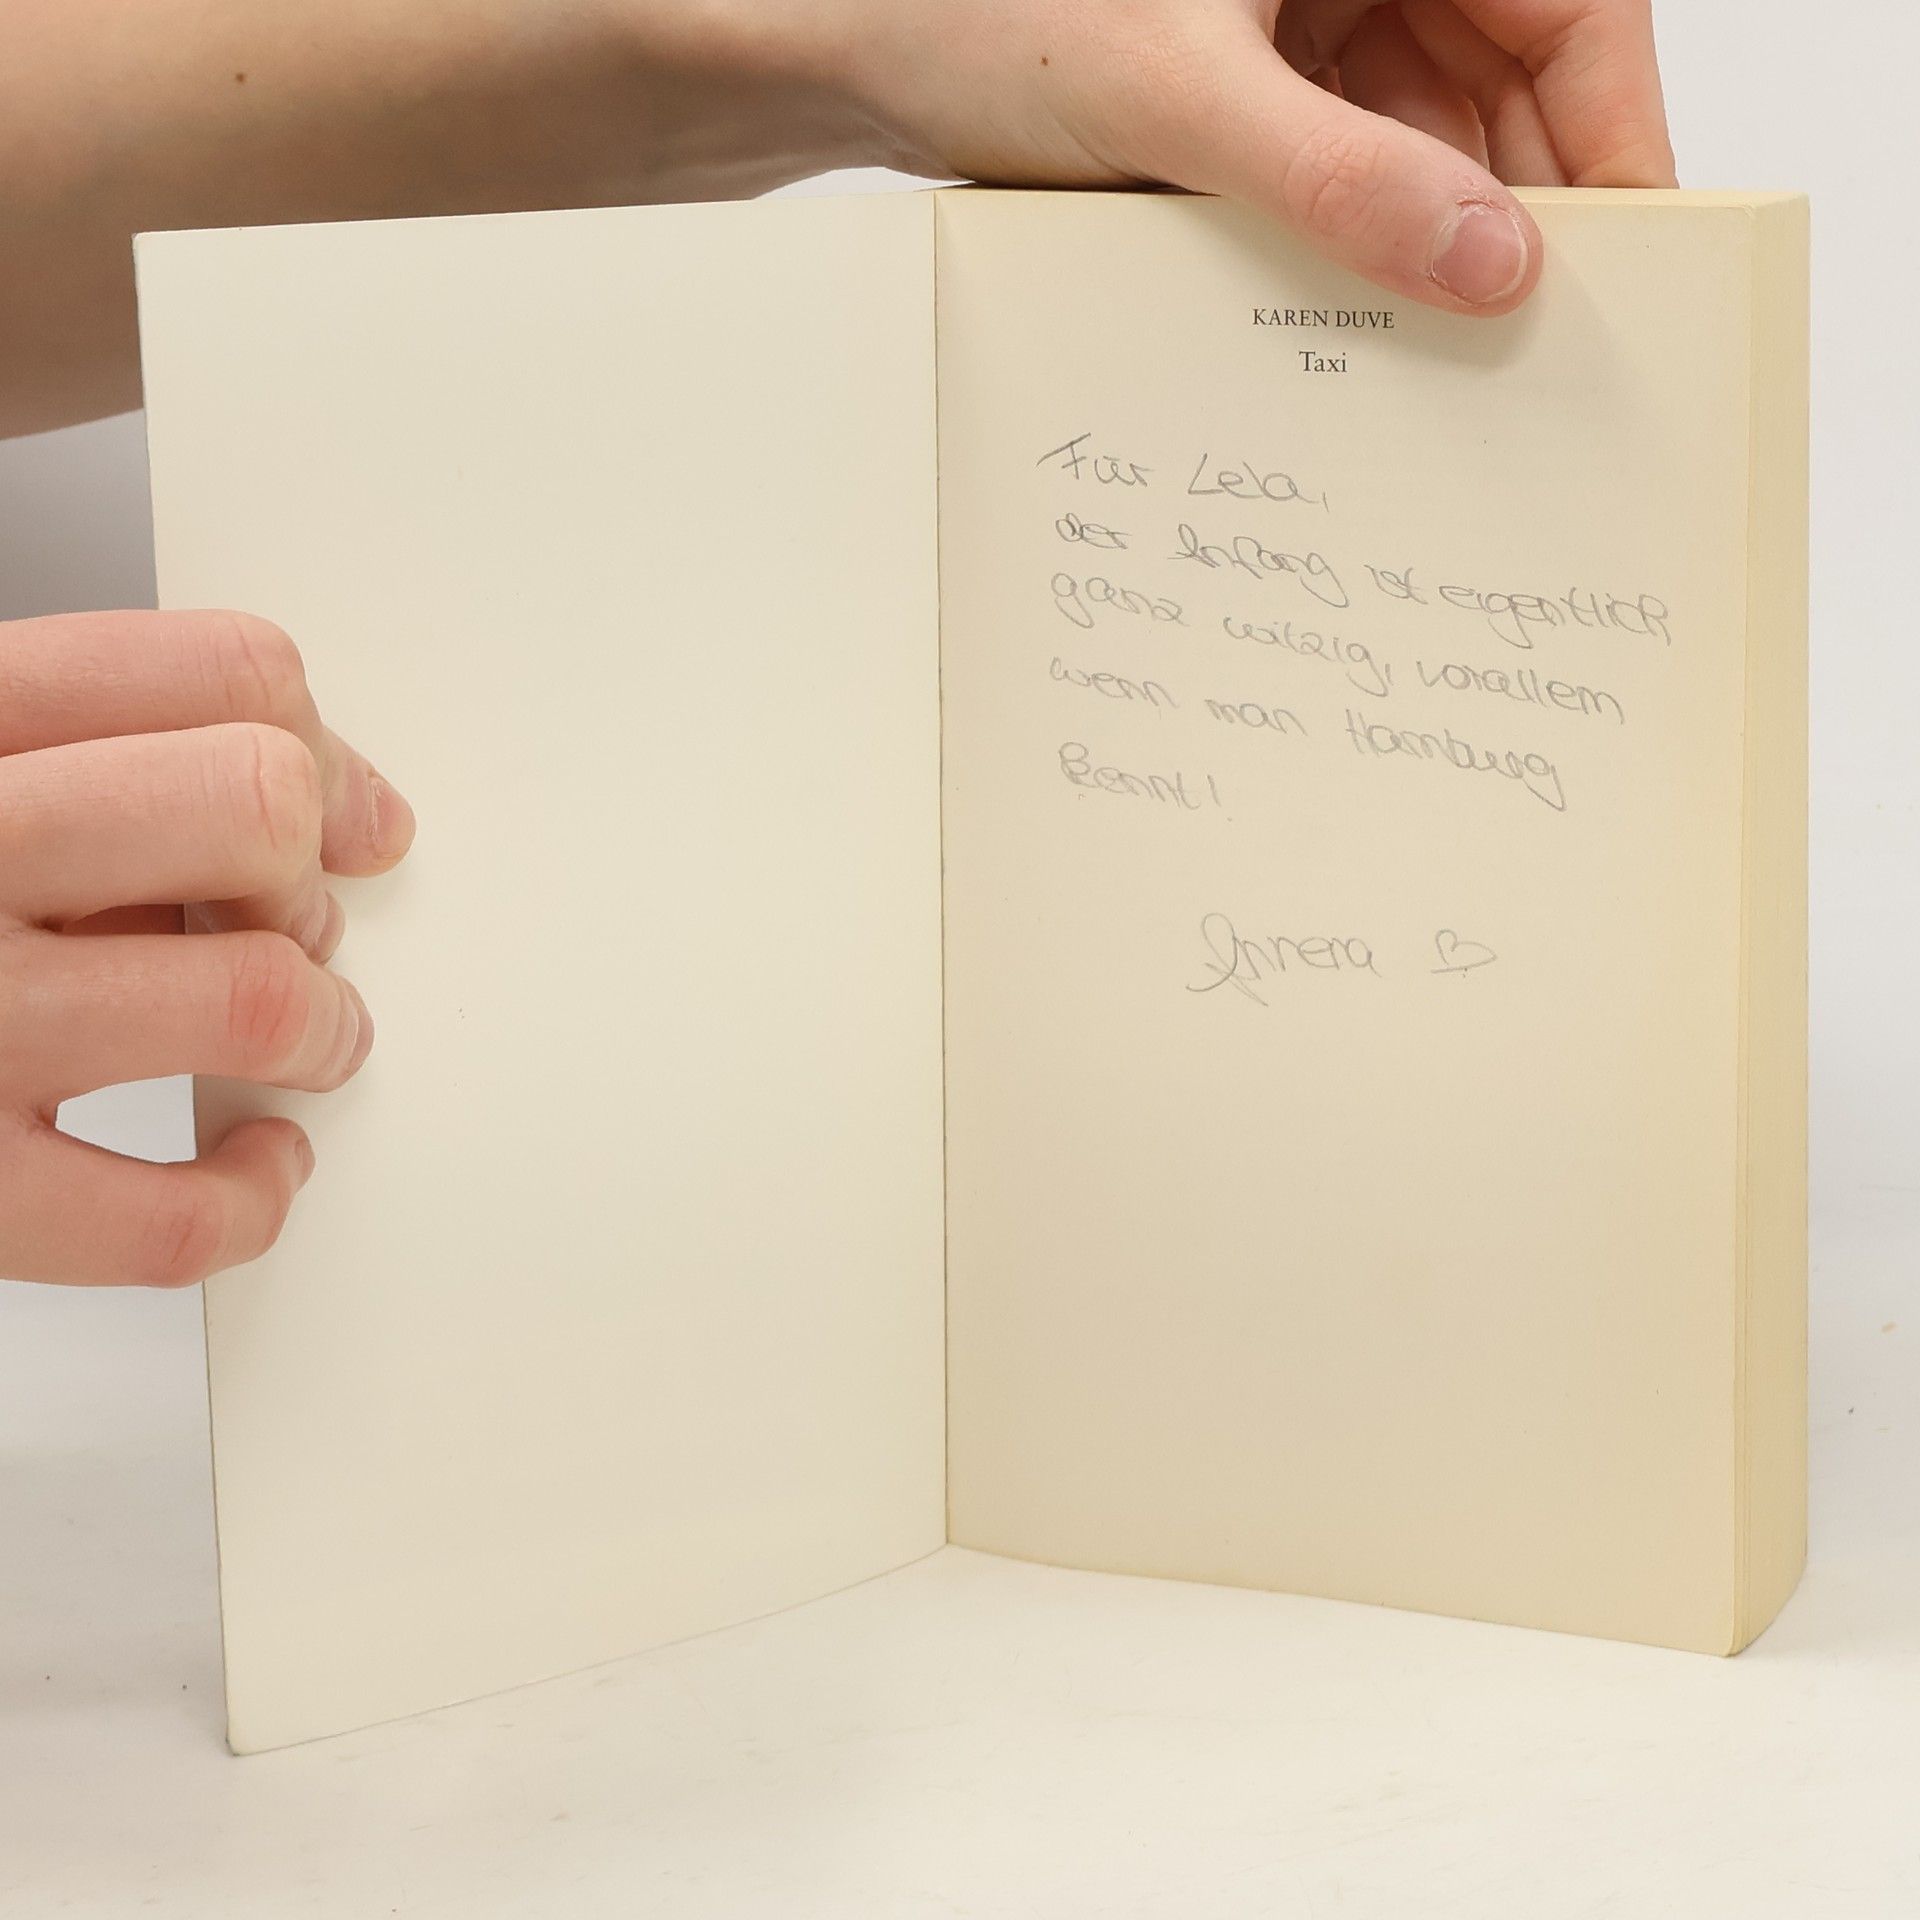 KAREN DUVE
Taxi
Für Lela,
der Anfang ist eigentlich
ganz witzig, vorallem
wenn man Hamburg
kennt!